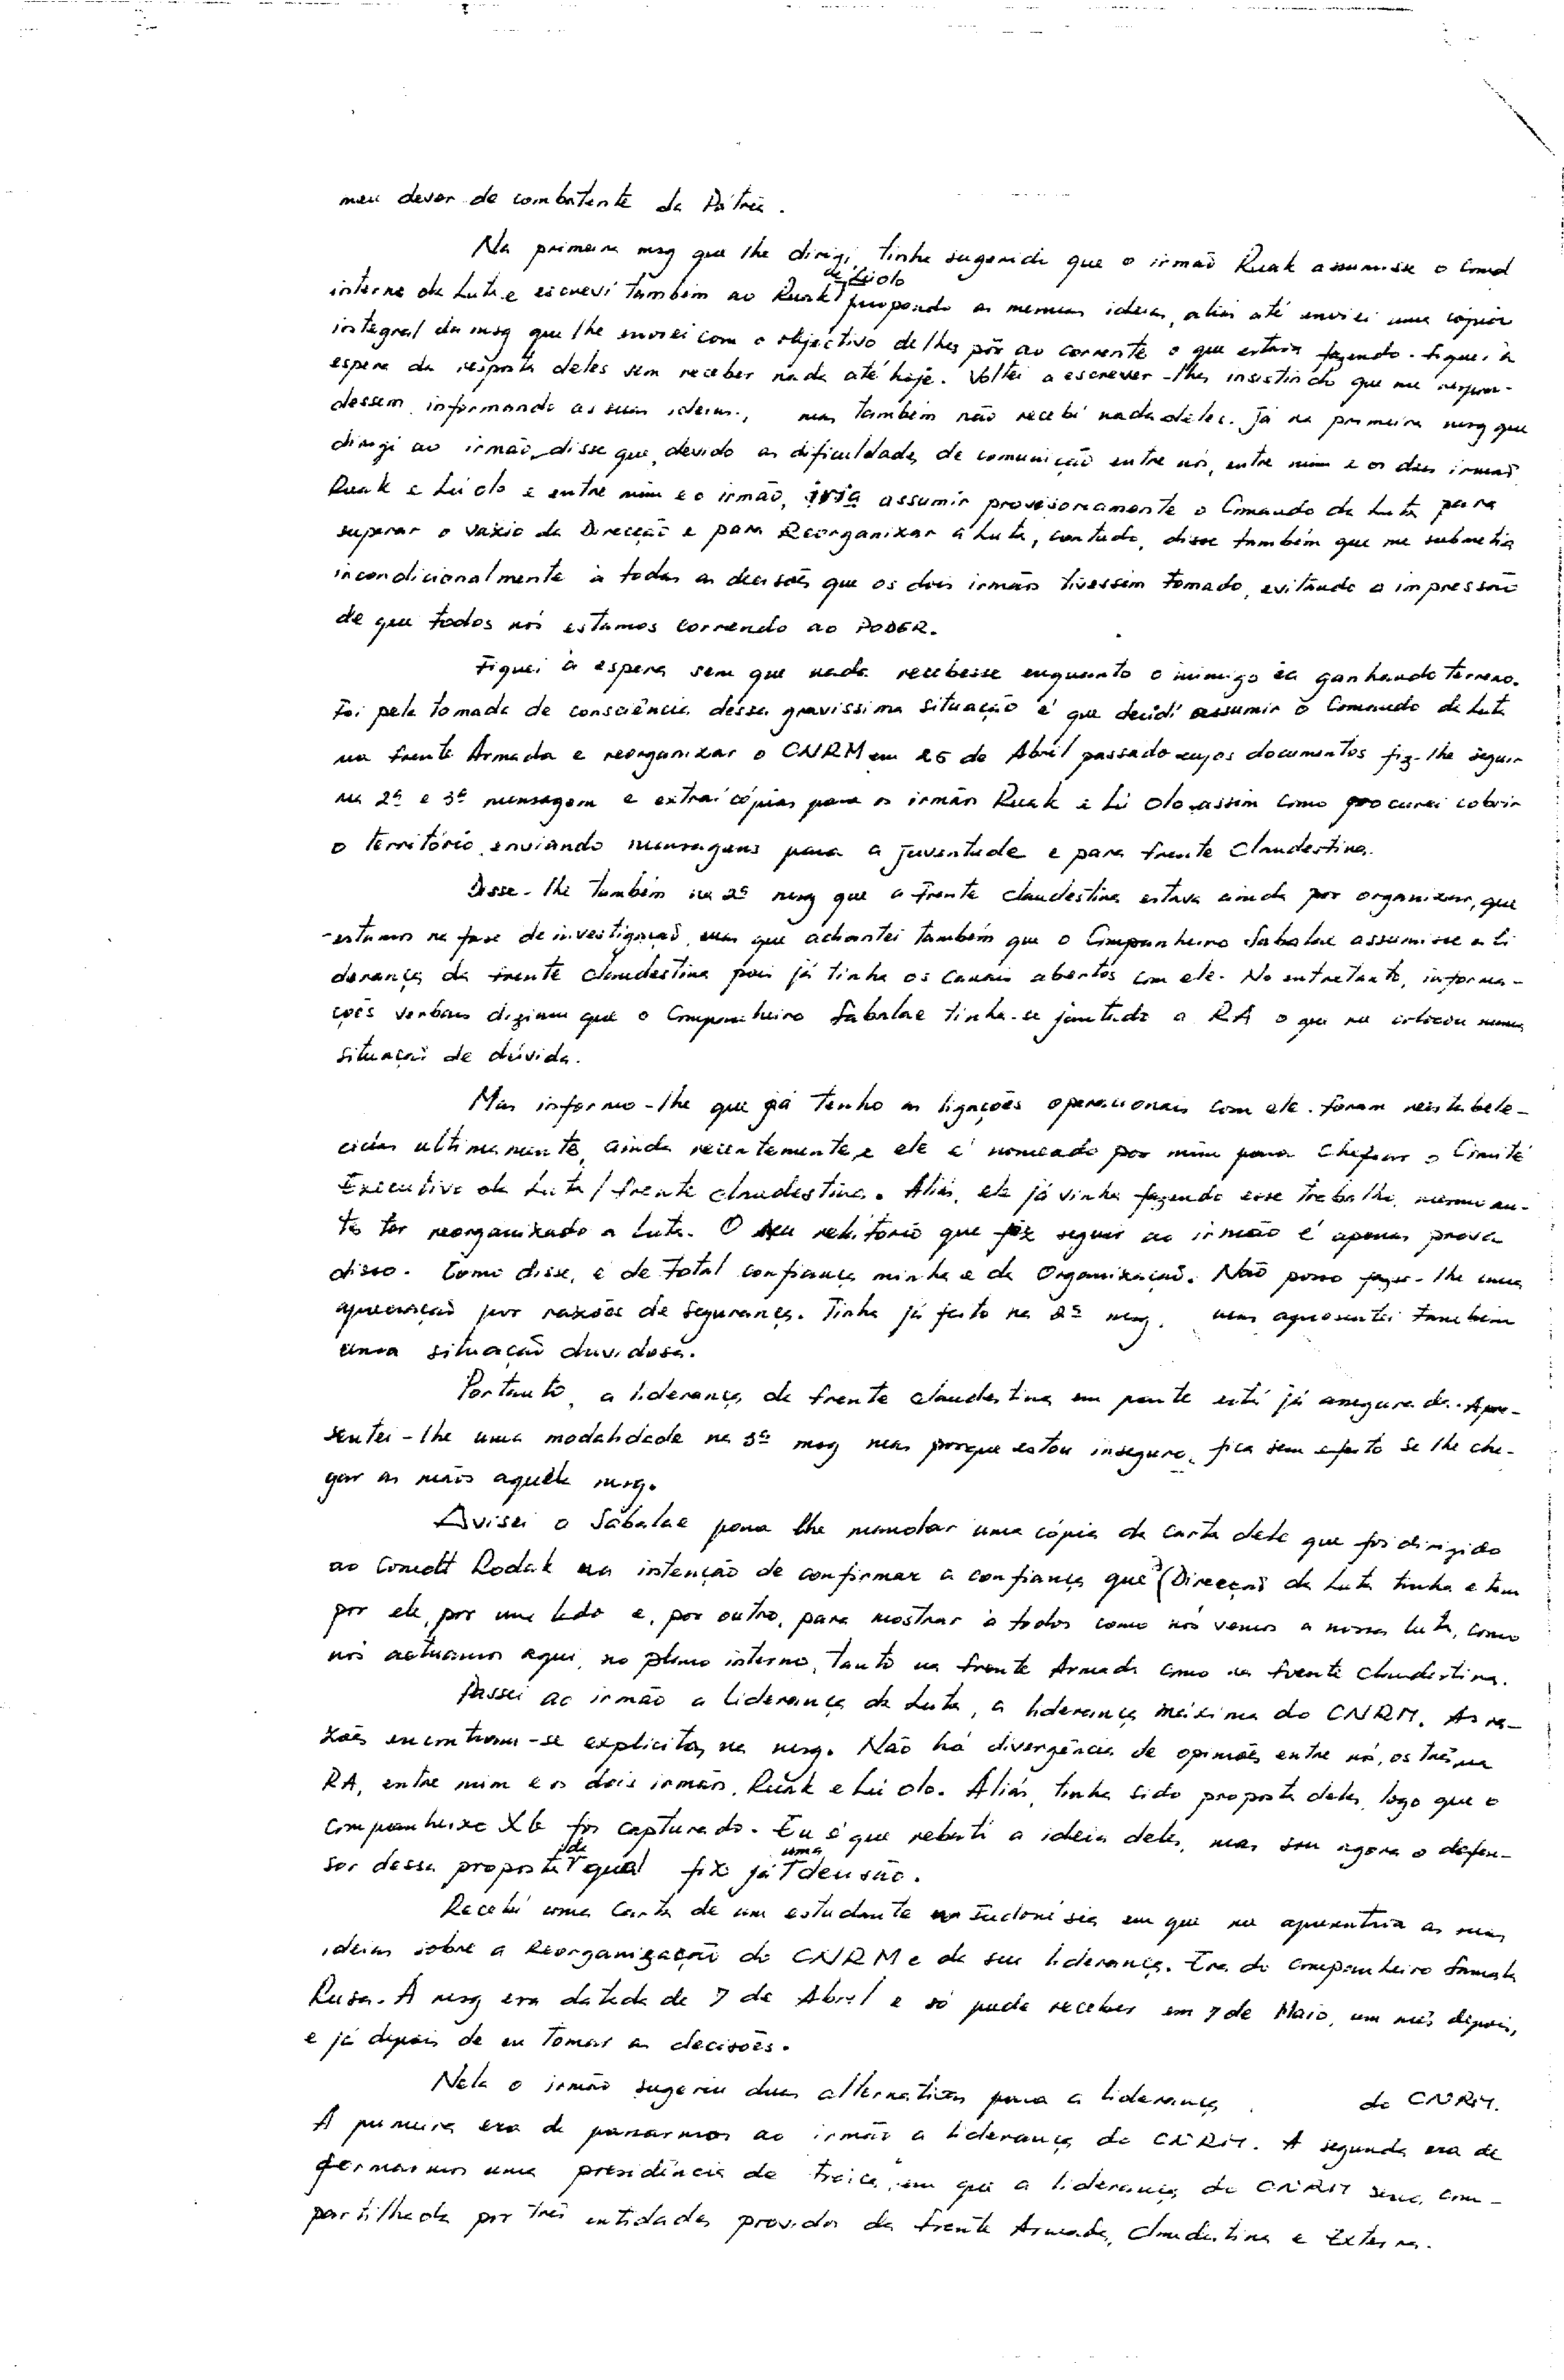 meu dever de combatente da Pátria.
Na primeira msg que lhe dirigi, tinha sugerido que o irmão Ruak assumisse o Comd
interno da Luta e escrevi também ao Ruak e Lú olo propondo as mesmas ideias, aliás até enviei uma cópia
integral da msg que lhe enviei com o objectivo de lhes pôr ao corrente o que estava fazendo. Fiquei à
espera da resposta deles sem receber nada até hoje. Voltei a escrever-lhes insistindo que me respon-
dessem informando as suas ideias, mas também não recebí nada deles. Já na primeira msg que
dirigi ao irmão, disse que, devido as dificuldades de comunição entre nós, entre mim e os dois irmãos
Ruak e Lú olo e entre mim e o irmão, iria assumir provisoriamente o Comando da Luta para
superar o vaxio da Direcção e para Reorganixar a Luta, contudo, disse também que me submetia
incondicionalmente à todas as decisões que os dois irmãos tivessem tomado, evitando a impressão
de que todos nós estamos correndo ao PODER.
Fiquei à espera sem que nada recebesse enquanto o inimigo ia ganhando terreno.
Foi pela tomada de consciência dessa gravissima situação é que decidí assumir o Comando da Luta
na frente Armada e reorganixar o CNRM em 25 de Abril passado cujos documentos fiz-lhe seguir
na 2ª e 3ª mensagem e extraí cópias para os irmãos Ruak e Lú Olo assim como procurei cobrir
o território, enviando mensagens para a juventude e para frente Clandestina.
Disse-lhe também na 2ª msg que a frente clandestina estava ainda por organixar, que
estamos na fase de investigação, mas que adiantei também que o Companheiro Sabalae assumisse a li
derança da frente clandestina pois já tinha os canais abertos com ele. No entretanto, informa-
ções verbais diziam que o Companheiro Sabalae tinha-se juntado a RA o que me colocou numa
situação de dúvida.
Mas informo-lhe que já tenho as ligações operacionais com ele. Foram reestabele-
cidas ultimamente, ainda recentemente, e ele é nomeado por mim para chefiar o Comité
Executivo da Luta/frente clandestina. Aliás, ele já vinha fazendo esse trabalho, mesmo an-
tes ter reorganixado a Luta. O seu relatório que fix seguir ao irmão é apenas prova
disso. Como disse, é de total confiança minha e da Organixação. Não posso fazer-lhe uma
apreciação por raxões de segurança. Tinha já feito na 2ª msg, mas apresentei também
uma situação duvidosa.
Portanto, a liderança da frente clandestina em parte está já assegurada. Apre-
sentei-lhe uma modalidade na 3ª msg mas porque estou inseguro, fica sem efeito se lhe che-
gar as mãos aquela msg.
Avisei o Sabalae para lhe mandar uma cópia da carta dele que foi dirigido
ao Comdt Rodak na intenção de confirmar a confiança que a Direcção da Luta tinha e tem
por ele, por um lado e, por outro, para mostrar à todos como nós vemos a nossa luta, como
nós actuamos aqui, no plano interno, tanto na frente Armada como na frente clandestina.
Passei ao irmão a liderança da Luta, a liderança máxima do CNRM. As ra-
xões encontram-se explicitas na msg. Não há divergência de opiniões entre nós, os três na
RA, entre mim e os dois irmãos, Ruak e Lú olo. Aliás, tinha sido proposta deles, logo que o
companheiro XG foi capturado. Eu é que rebati a ideia deles, mas sou agora o defen-
sor dessa proposta de qual fix já uma decisão.
Recebí uma carta de um estudante na Indonésia em que me apresentava as suas
ideias sobre a Reorganização do CNRM e da sua liderança. Era do companheiro Samala
Rusa. A msg era datada de 7 de Abril e só pude receber em 7 de Maio, um mês depois,
e já depois de eu tomar as decisões.
Nela o irmão sugeriu duas alternativas para a liderança do CNRM.
A primeira era de passarmos ao irmão a liderança do CNRM. A segunda era de
formarmos uma presidência de troica, em que a liderança do CNRM seria com-
partilhada por três entidades providas da frente Armada, Clandestina e Externa.